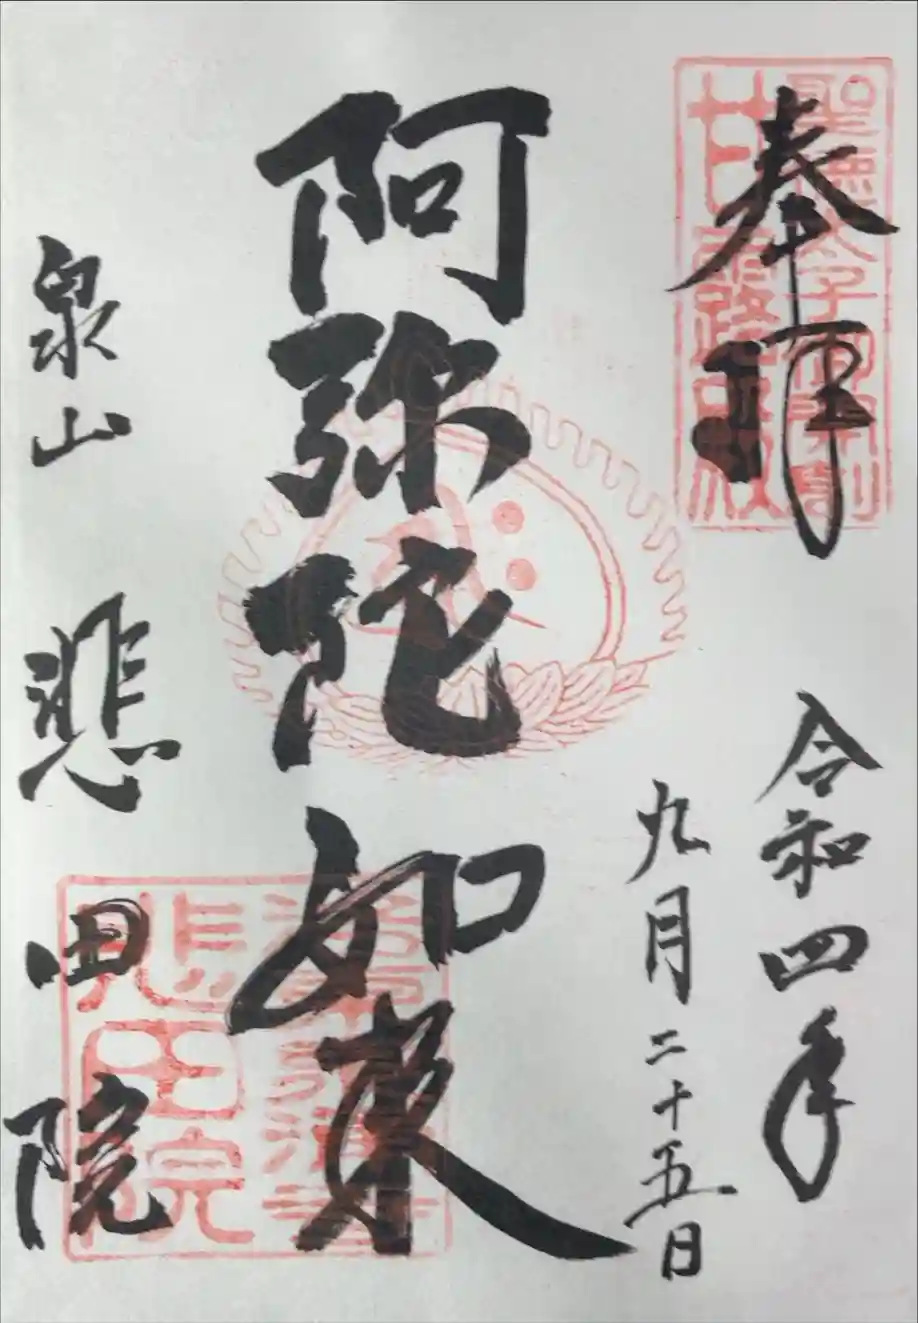 奉拝
令和四年
九月二十五日
阿弥陀如来
泉山
悲田院
聖徳太子御草創
甘露
悲田院